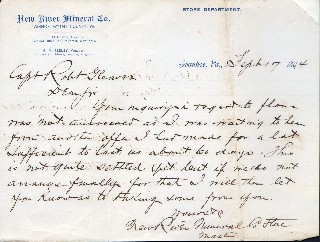 STORE DEPARTMENT.
New River Mineral Co.
Ivanhoe, Va., Sept 17 1894
Capt Robt
Dear Sir
Your inquiry in regard to flour
was not answered as I was waiting to hear
from another offer I had made for a lot
sufficient to last us about 60 days. This
is not quite settled yet but if we do not
arrange finally for that I will then let
you know as to taking some from you.
Yours &c
New River Mineral Co Store